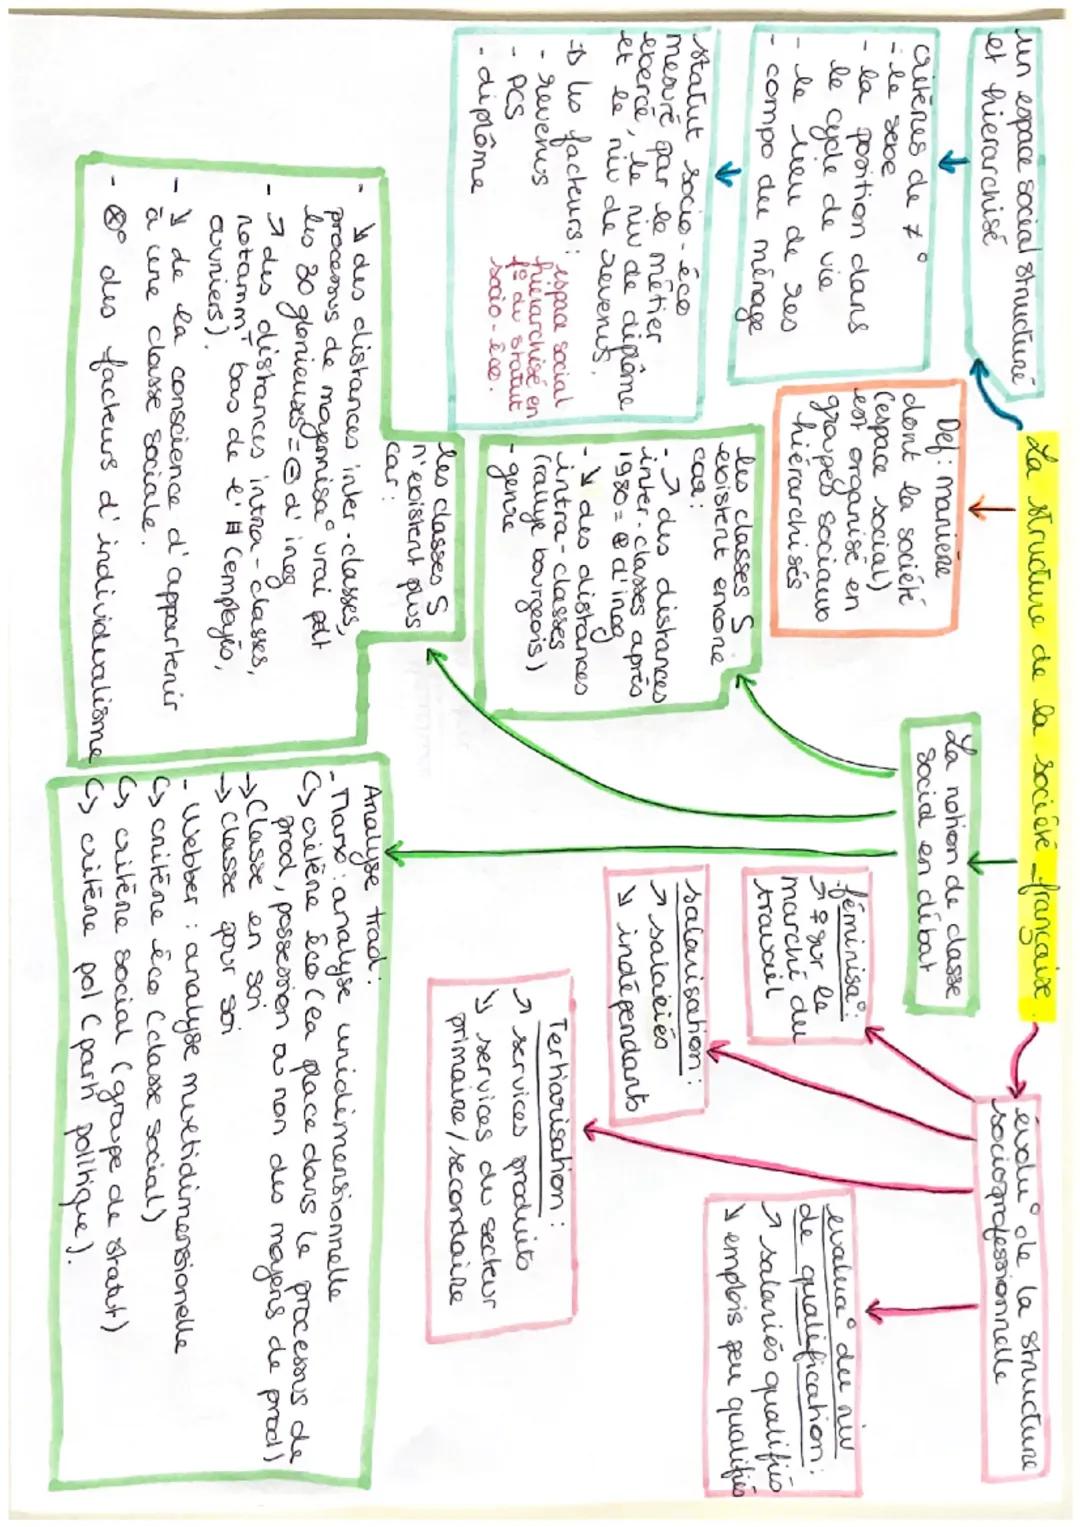 La structure de la société française.
un espace social structuré
et hiérarchisé
critères de ≠°
- le sexe
- la position dans
le cycle de vie
- le lieu de res
- compo du ménage
statut socio-éco
mesuré par le métier
exercé, le niv de diplôme
et le niv de revenus.
→ les facteurs :
- revenus
- PCS
- diplôme
espace social
hiérarchisé en
f° du statut
socio-éco.
Def : manière
dont la société
(espace social)
est organisé en
groupes sociaux
hiérarchisés
La notion de classe
social en débat
les classes S
existent encore
car :
- ↗ des distances
inter-classes après
1980 = ⊕ d'ineg
- ↘ des distances
intra-classes
(rallye bourgeois)
- genre
les classes S
n'existent plus
car :
- ↘ des distances inter-classes,
processus de moyennisa° vrai pdt
les 30 glorieuses = ⊖ d'ineg
- ↗ des distances intra-classes,
notammt bas de l'# (employés,
ouvriers).
- ↘ de la conscience d'appartenir
à une classe sociale.
- ⊗° des facteurs d'individualisme
Analyse trad :
- Marx : analyse unidimensionnelle
↳ critère éco (la place dans le processus de
prod, possession ou non des moyens de prod)
→ Classe en soi
→ Classe pour soi
- Webber : analyse multidimensionelle
↳ critère éco (classe social)
↳ critère social (groupe de statut)
↳ critère pol (parti politique).
évolu° de la structure
socioprofessionnelle
féminisa° :
↗ ♀ sur le
marché du
travail
salarisation :
↗ salariés
↘ indépendants
Tertiarisation :
↗ services produits
↘ services du secteur
primaire/secondaire
evalua° du niv
de qualification :
↗ salariés qualifiés
↘ emplois peu qualifiés